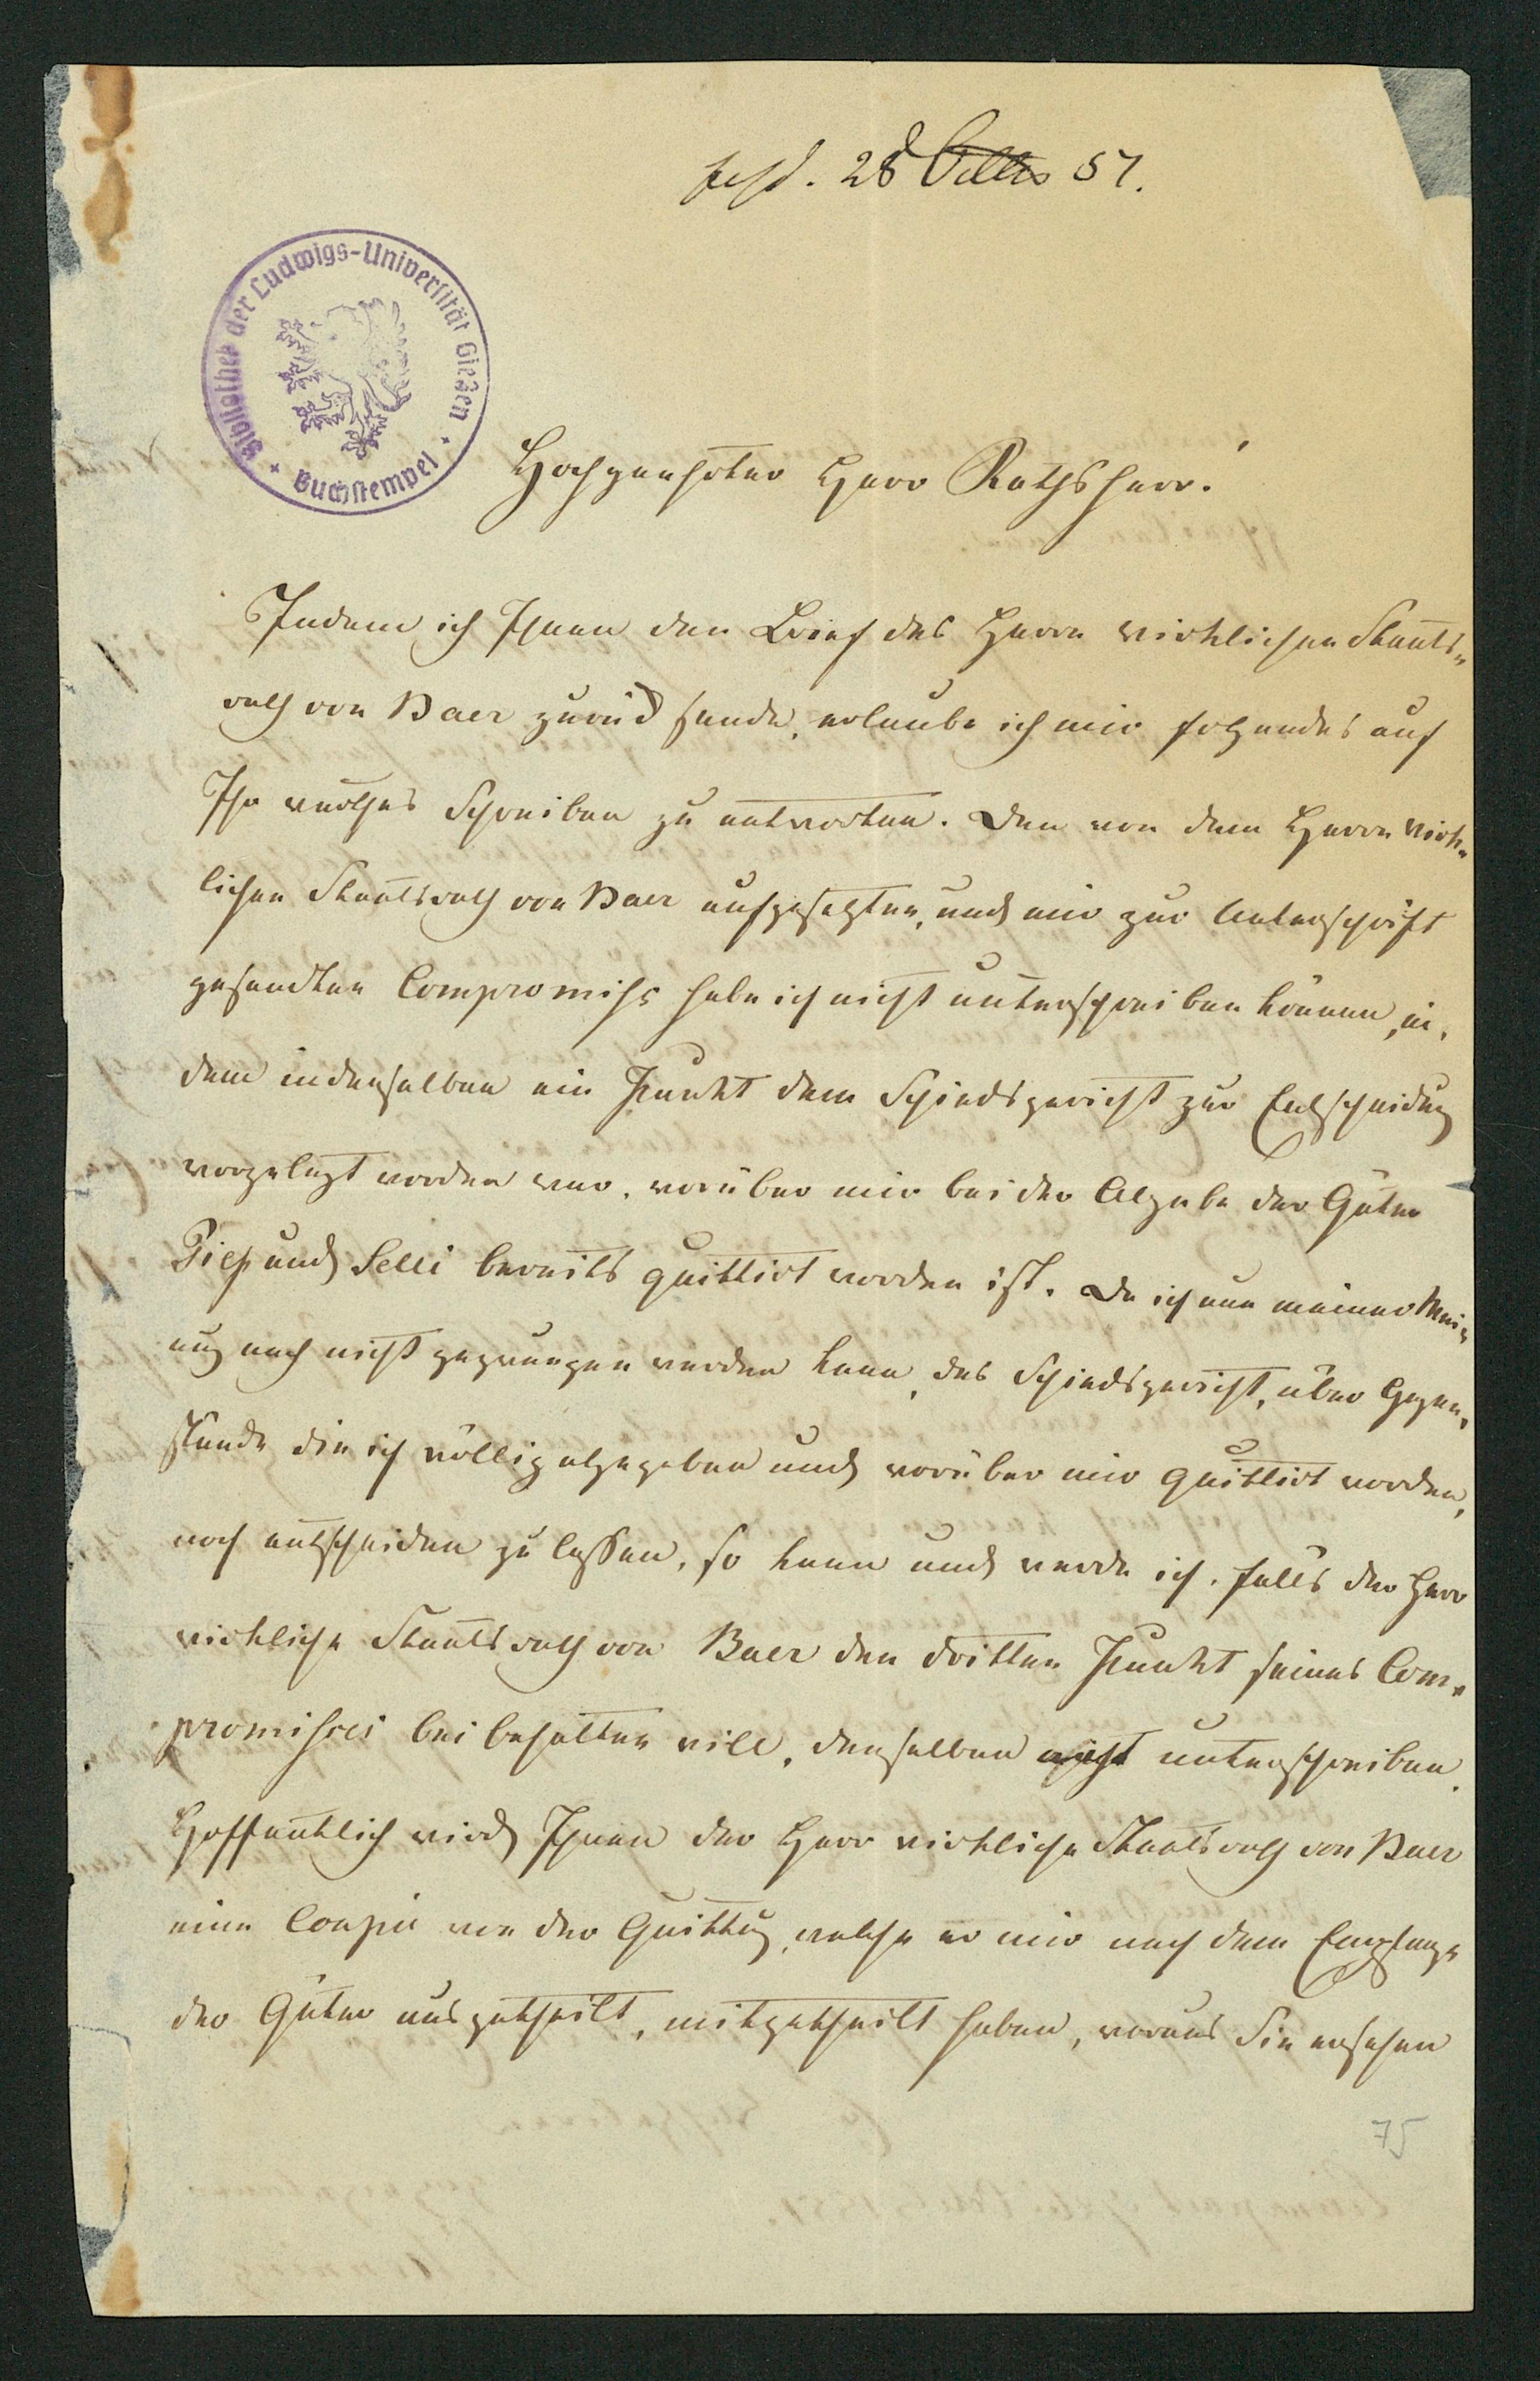 28 Octbr 51.
Bibliothek der Ludwigs-Universität Gießen
Buchstempel
Hochgeehrter Herr Rathsherr!
Indem ich Ihnen den Brief des Herrn wirklichen Staats-
rath von Baer zurück sende, erlaube ich mir folgendes auf
Ihr werthes Schreiben zu antworten. Den von dem Herrn wirk-
lichen Staatsrath von Baer aufgesetzten, und mir zur Unterschrift
gesandten Compromiss habe ich nicht unterschreiben können, in-
dem in denselben ein Punkt dem Schiedsgericht zur Entscheidung
vorgelegt worden war, worüber mir bei der Abgabe der Güter
Piep und Selli bereits quittirt worden ist. Da ich nun meiner Mein-
ung nach nicht gezwungen werden kann, das Schiedsgericht, über Gegen-
stände die ich völlig abgegeben und worüber mir quittirt worden,
noch entscheiden zu lassen, so kann und werde ich, falls der Herr
wirkliche Staatsrath von Baer den dritten Punkt seines Com-
promisses beibehalten will, denselben nicht unterschreiben.
Hoffentlich wird Ihnen der Herr wirkliche Staatsrath von Baer
eine Coupie von der Quittung, welche er mir nach dem Empfange
der Güter ausgetheilt, mitgetheilt haben, woraus Sie ersehen
75